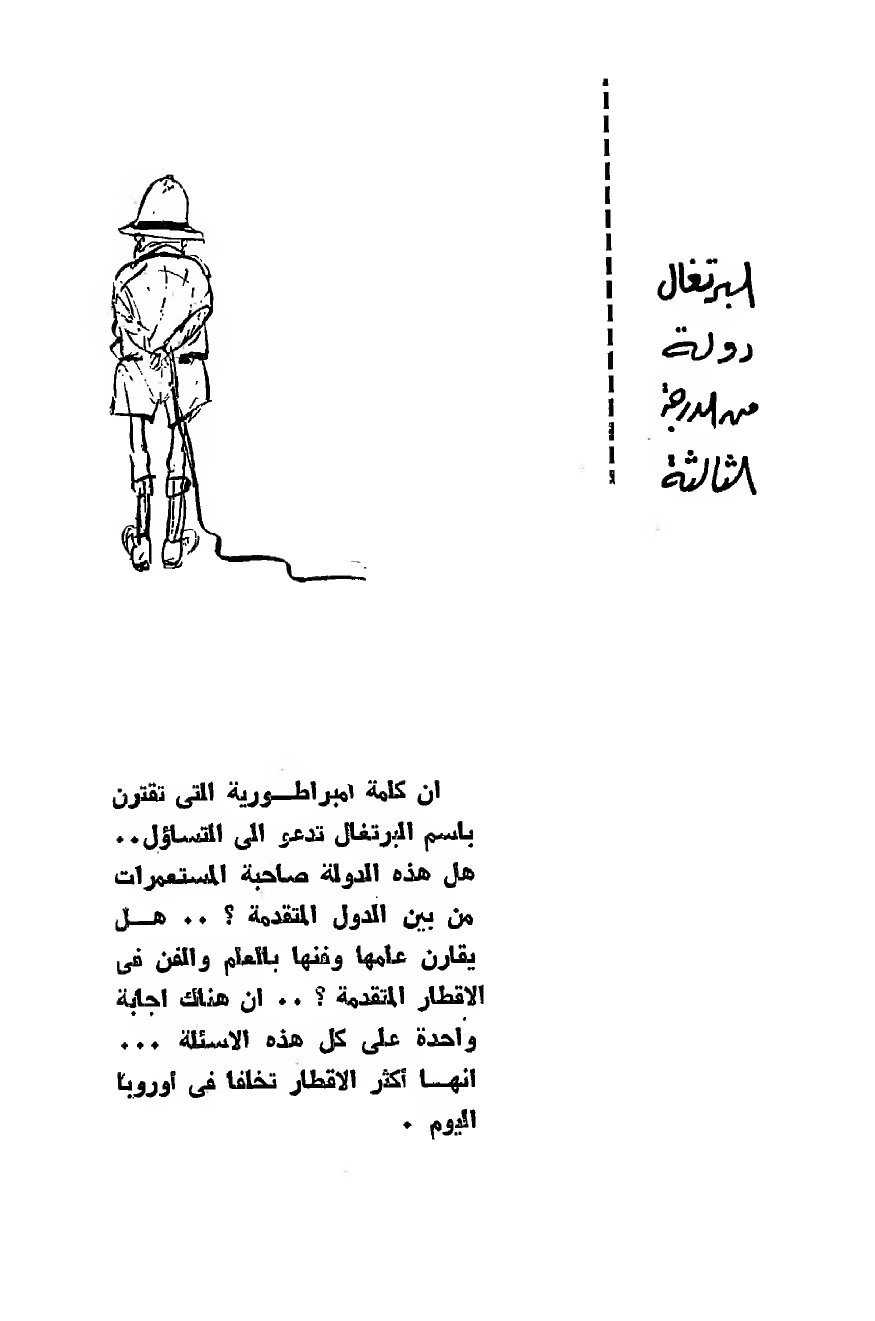 البرتغال
دولة
من الدرجة
الثالثة
ان كلمة امبراطـــورية التى تقترن
باسم البرتغال تدعو الى التساؤل..
هل هذه الدولة صاحبة المستعمرات
من بين الدول المتقدمة ؟ .. هـــل
يقارن علمها وفنها بالعلم والفن فى
الاقطار المتقدمة ؟ .. ان هناك اجابة
واحدة على كل هذه الاسئلة ...
انهـــا أكثر الاقطار تخلفا فى أوروبا
اليوم .